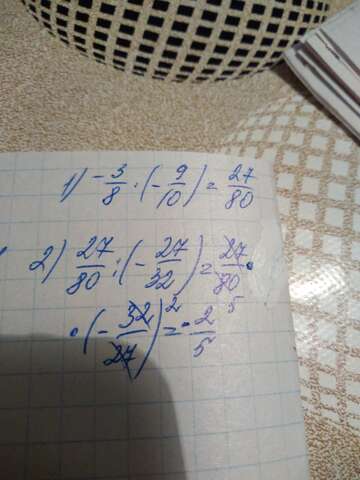 1) -3/8 · (-9/10) = 27/80
2) 27/80 : (-27/32) = 27/80 ·
· (-32/27) 2 = -2/5
5